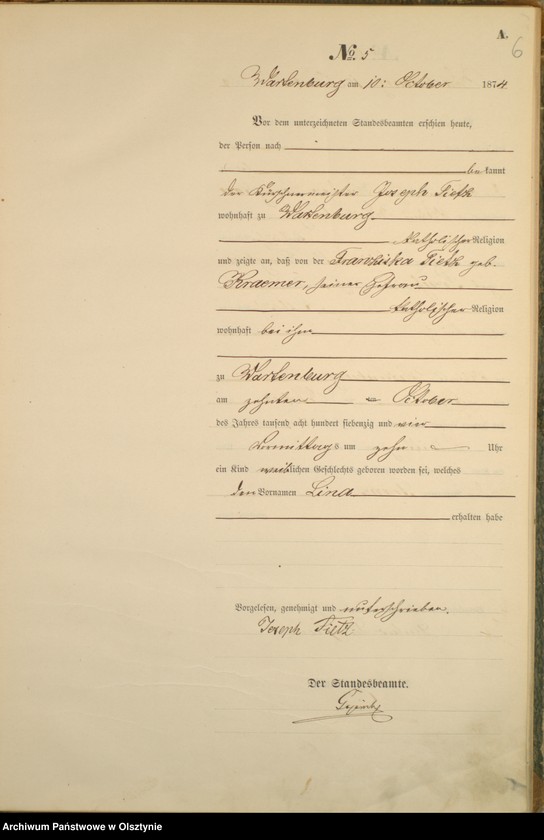 A.
6
No. 5
Wartenburg am 10: October 1874
Vor dem unterzeichneten Standesbeamten erschien heute,
der Person nach
bekannt
der Kürschnermeister Joseph Tietz
wohnhaft zu Wartenburg
katholischer Religion
und zeigte an, daß von der Franziska Tietz geb.
Kraemer, seiner Ehefrau
katholischer Religion
wohnhaft bei ihm
zu Wartenburg
am zehnten October
des Jahres tausend acht hundert siebenzig und vier
Vormittags um zehn Uhr
ein Kind weiblichen Geschlechts geboren worden sei, welches
den Vornamen Lina
erhalten habe
Vorgelesen, genehmigt und unterschrieben.
Joseph Tietz
Der Standesbeamte.
Archiwum Państwowe w Olsztynie